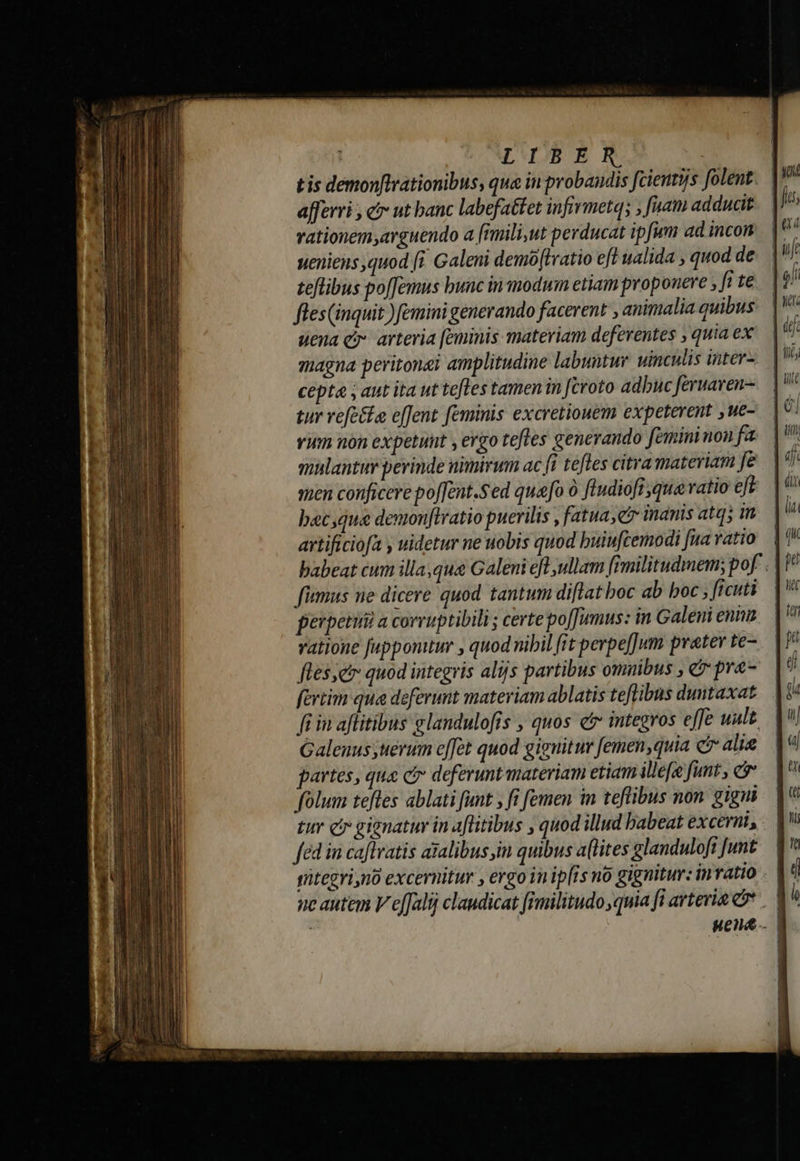 LIBER
tis demonſtrationibus, quæ in probandis ſcientijs ſolent
afferri, & ut hanc labefactet infirmetq;, ſuam adducit
rationem, arguendo a ſimili, ut perducat ipſum ad incon
ueniens, quod ſi Galeni demōſtratio eſt ualida, quod de
teſtibus poſſemus hunc in modum etiam proponere, ſi te
ſtes (inquit) ſemini generando facerent, animalia quibus
uena & arteria ſeminis materiam deferentes, quia ex
magna peritonæi amplitudine labuntur uinculis inter-
cepta; aut ita ut teſtes tamen in ſcroto adhuc ſeruaren-
tur reſecta eſſent ſeminis excretionem expeterent, ue-
rum non expetunt, ergo teſtes generando ſemini non fa
mulantur perinde nimirum ac ſi teſtes citra materiam ſe
men conficere poſſent. Sed quæſo ò ſtudioſi, quæ ratio eſt
hæc, quæ demonſtratio puerilis, fatua, & inanis atq; in
artificioſa, uidetur ne uobis quod huiuſcemodi ſua ratio
habeat cum illa, quæ Galeni eſt, ullam ſimilitudinem; poſ
ſumus ne dicere quod tantum diſtat hoc ab hoc, ſicuti
perpetuū a corruptibili; certe poſſumus: in Galeni enim
ratione ſupponitur, quod nihil ſit perpeſſum præter te-
ſtes, & quod integris alijs partibus omnibus, & præ-
ſertim quæ deferunt materiam ablatis teſtibus duntaxat
ſi in aſtitibus glanduloſis, quos & integros eſſe uult
Galenus, uerum eſſet quod gignitur ſemen, quia & aliæ
partes, quæ & deferunt materiam etiam illeſæ ſunt, &
ſolum teſtes ablati ſunt, ſi ſemen in teſtibus non gigni
tur & gignatur in aſtitibus, quod illud habeat excerni,
ſed in caſtratis aīalibus, in quibus aſtites glanduloſi ſunt
integri, nō excernitur, ergo in ipſis nō gignitur: in ratio
ne autem Veſſalij claudicat ſimilitudo, quia ſi arteriæ &
uenæ